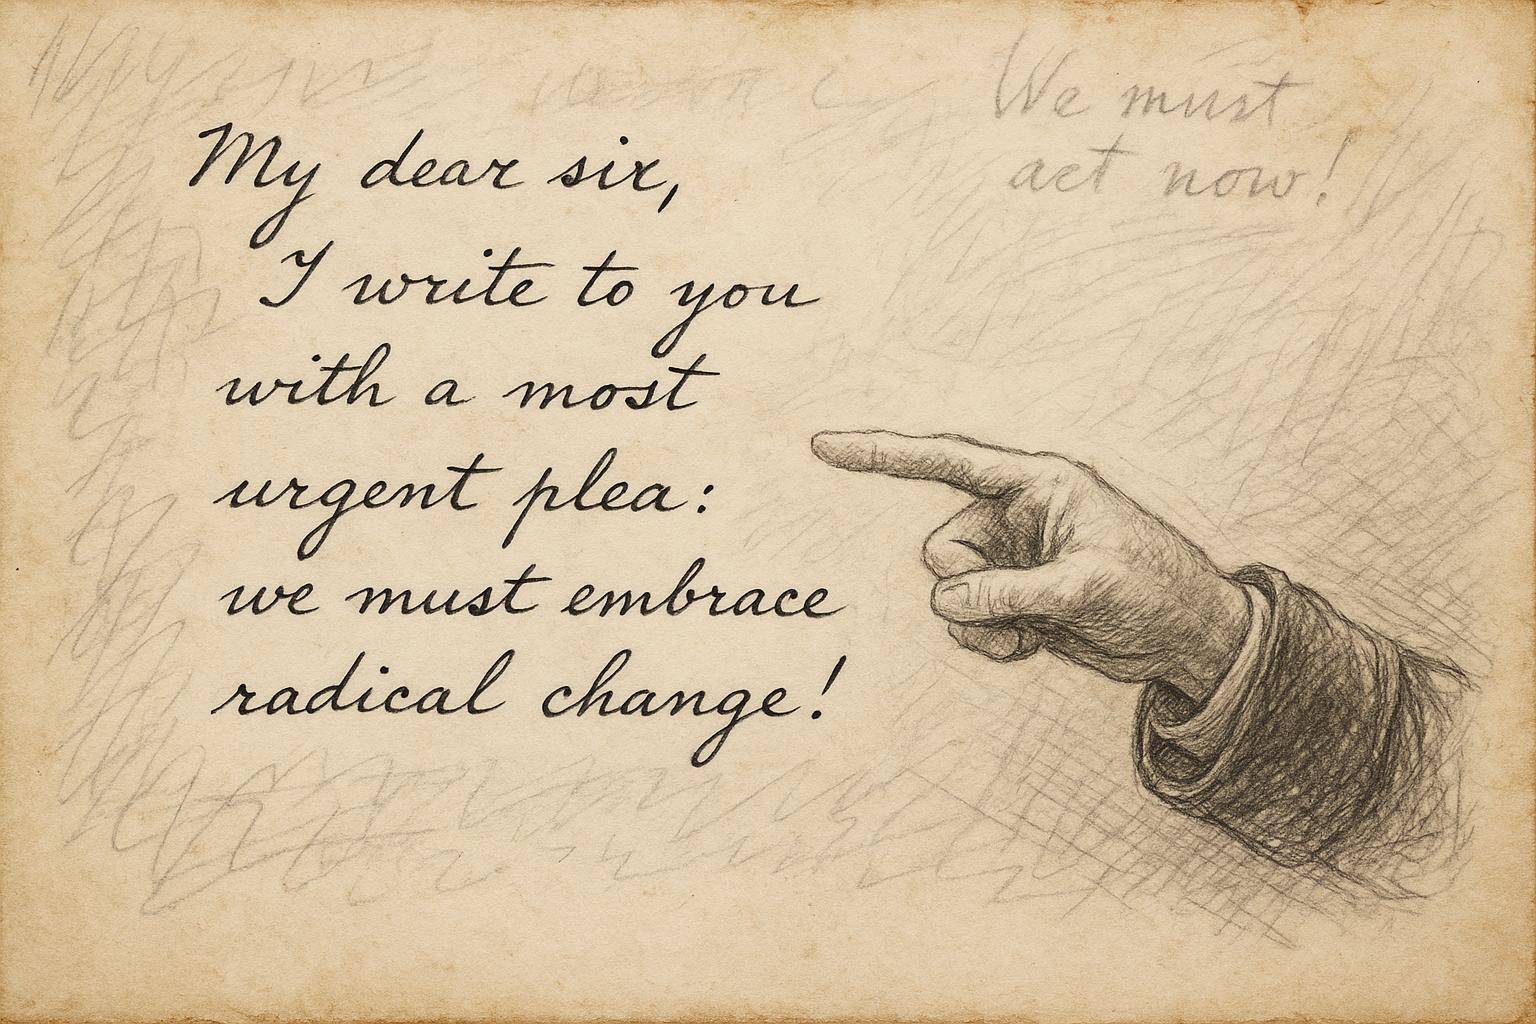 My dear sir,
I write to you
with a most
urgent plea:
we must embrace
radical change!
We must
act now!